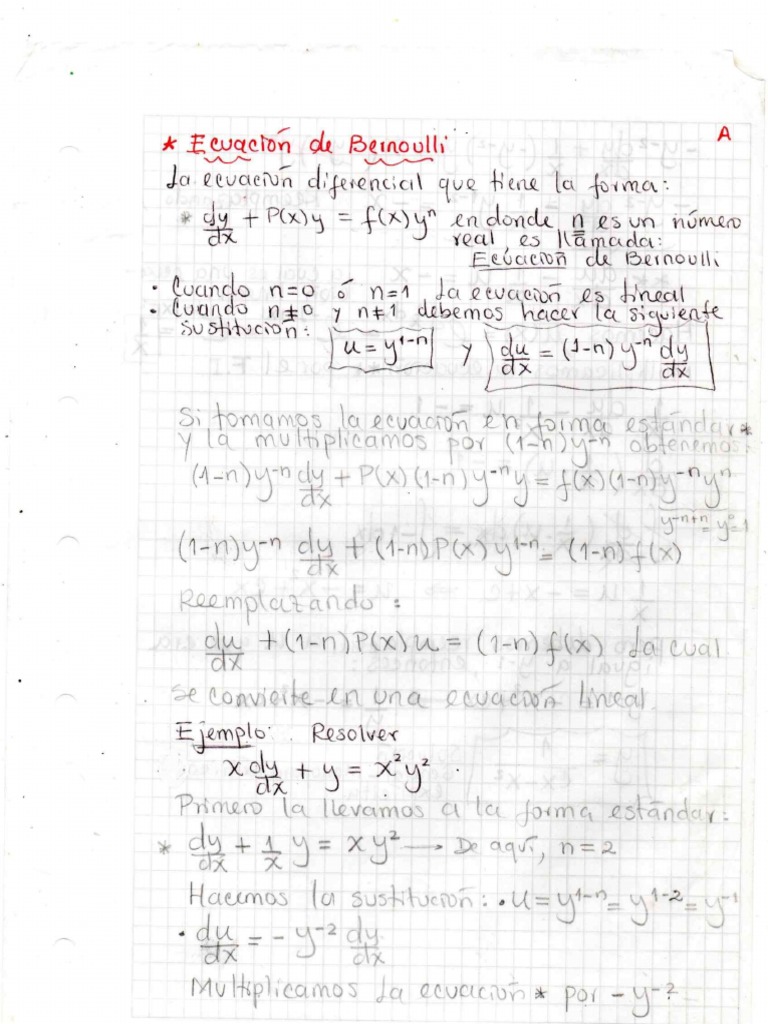 A
* Ecuación de Bernoulli
La ecuación diferencial que tiene la forma:
* dy/dx + P(x)y = f(x)yⁿ en donde n es un número
real, es llamada:
Ecuación de Bernoulli
• Cuando n=0 ó n=1 La ecuación es Lineal
• Cuando n≠0 y n≠1 debemos hacer la siguiente
sustitución: u = y¹⁻ⁿ y du/dx = (1-n) y⁻ⁿ dy/dx
Si tomamos la ecuación en forma estándar *
y la multiplicamos por (1-n)y⁻ⁿ obtenemos:
(1-n)y⁻ⁿ dy/dx + P(x)(1-n)y⁻ⁿy = f(x)(1-n)y⁻ⁿyⁿ
y⁻ⁿ⁺ⁿ=y⁰=1
(1-n)y⁻ⁿ dy/dx + (1-n)P(x)y¹⁻ⁿ = (1-n)f(x)
Reemplazando:
du/dx + (1-n)P(x)u = (1-n)f(x) La cual
se convierte en una ecuación lineal.
Ejemplo: Resolver
x dy/dx + y = x²y² .
Primero la llevamos a la forma estándar:
* dy/dx + 1/x y = xy² → De aquí, n=2
Hacemos la sustitución: • u = y¹⁻ⁿ = y¹⁻² = y⁻¹
• du/dx = - y⁻² dy/dx
Multiplicamos La ecuación * por - y⁻²